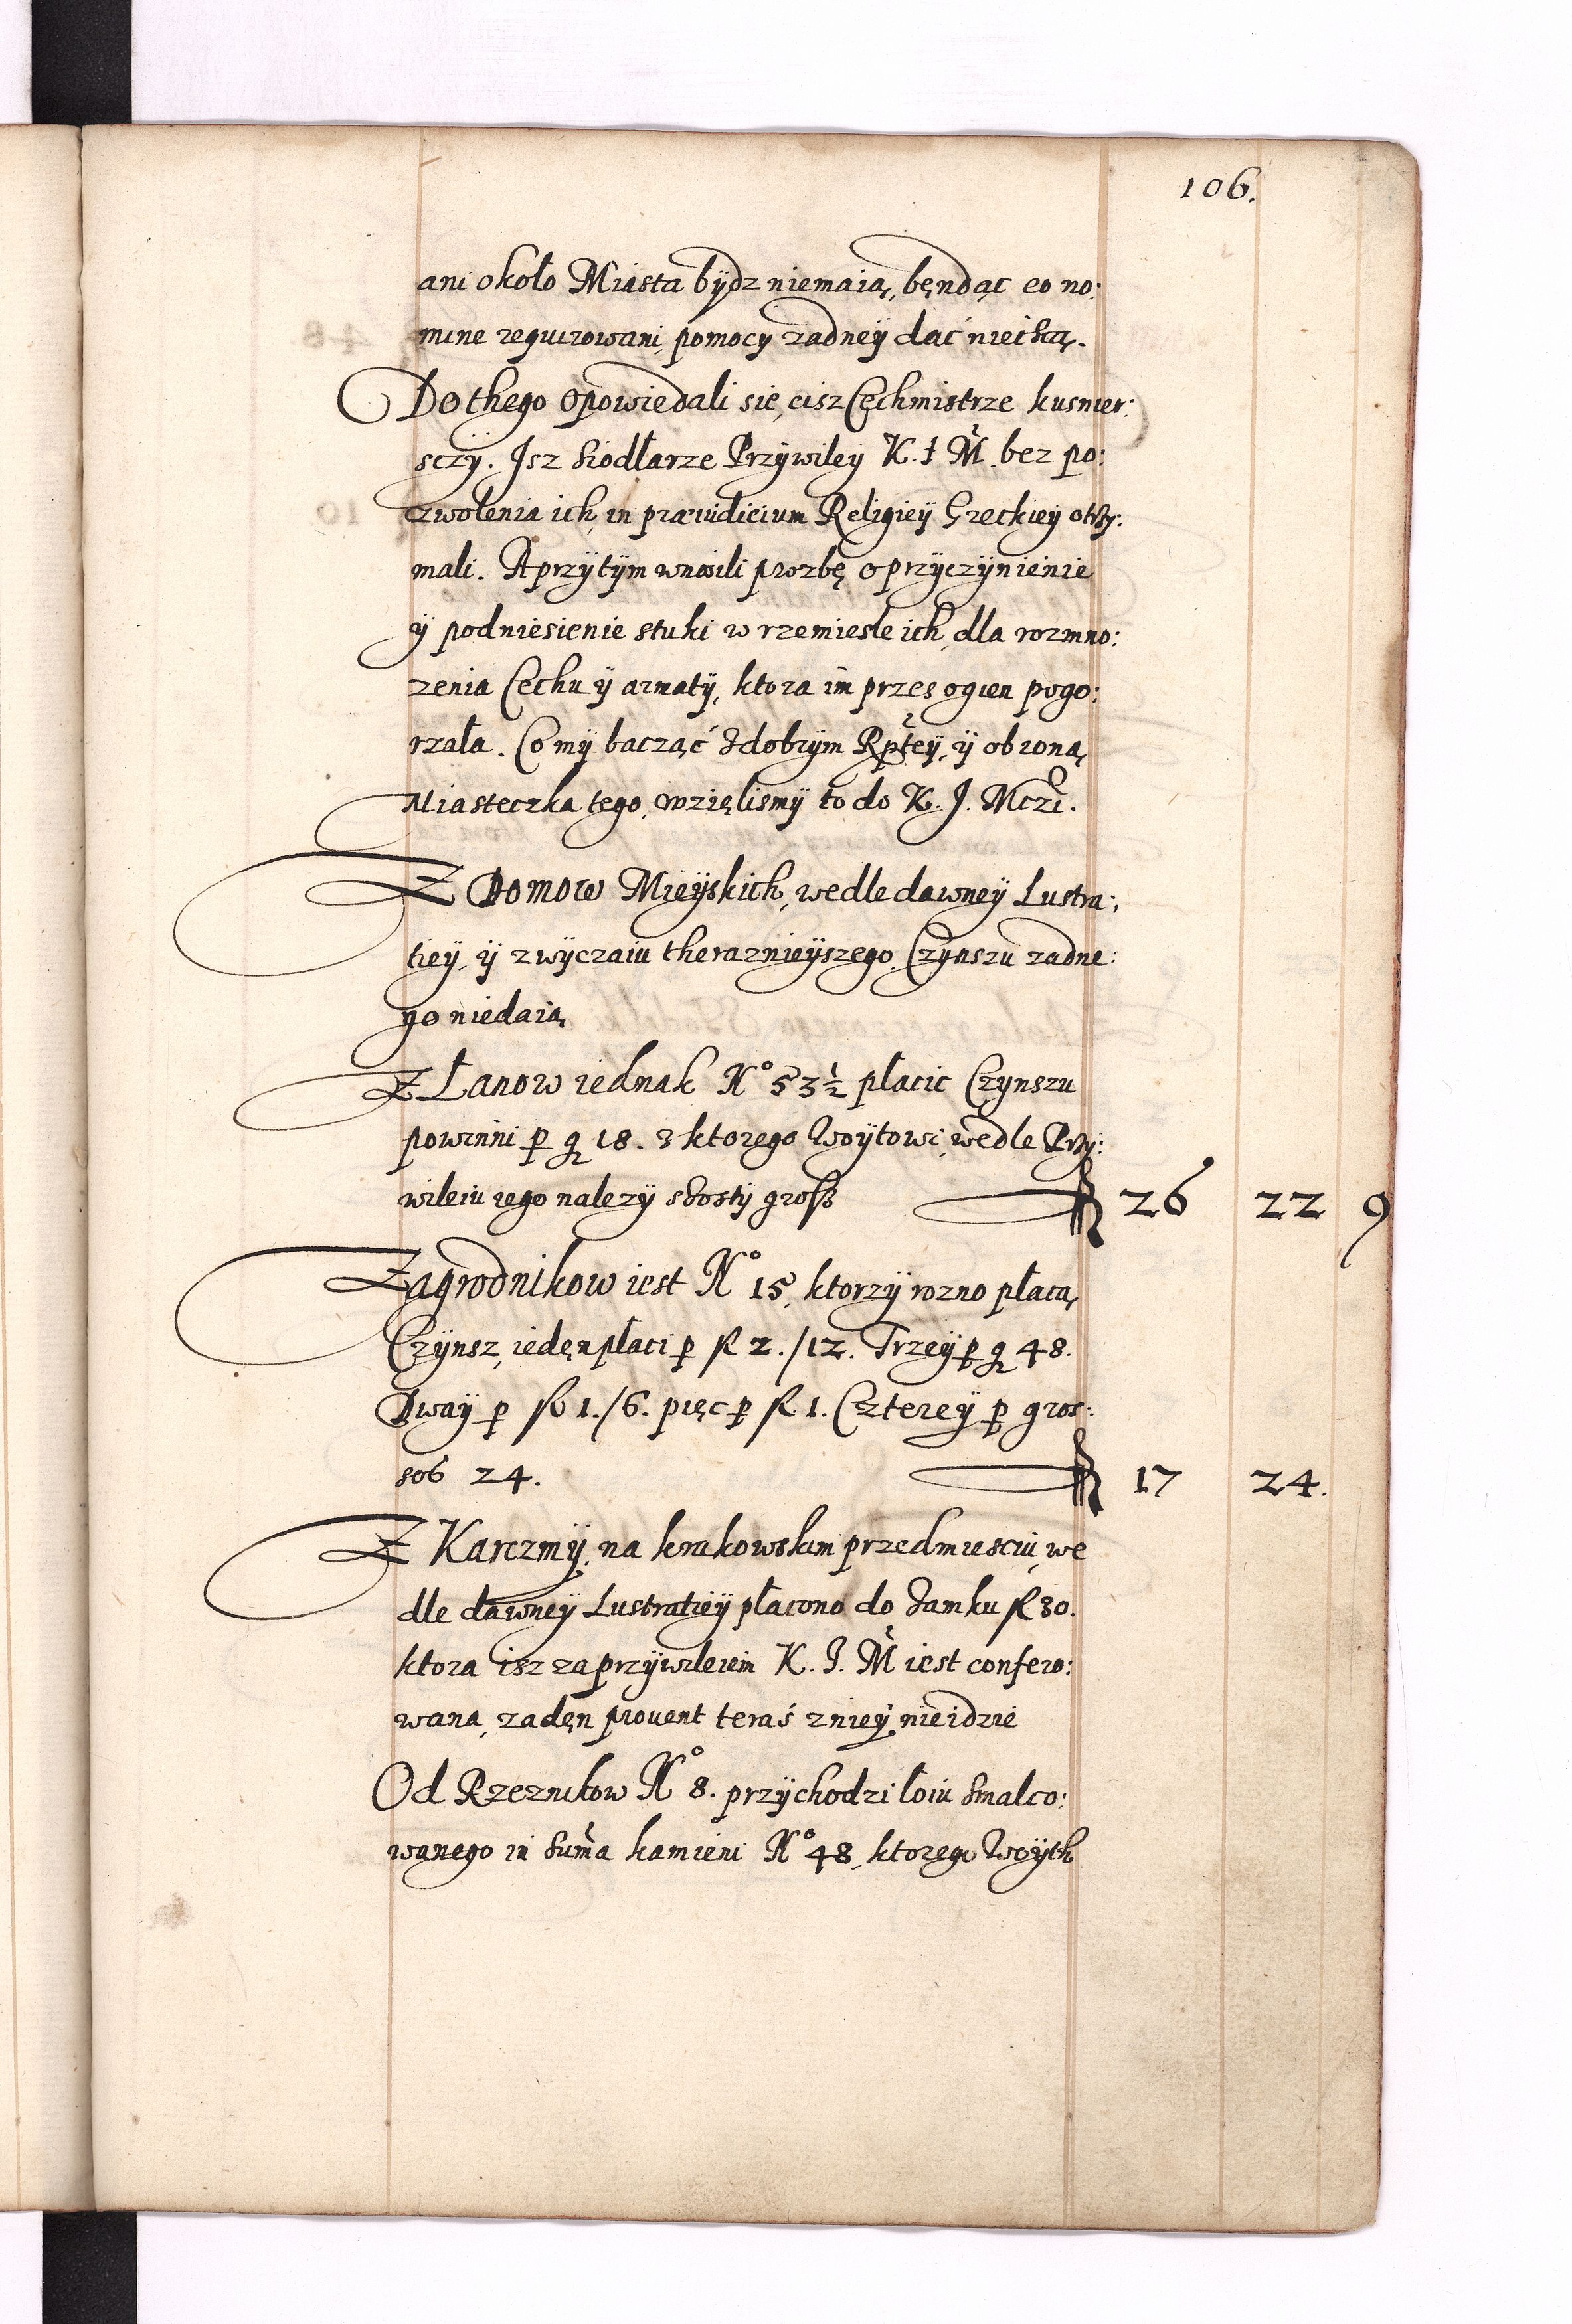 106.
ani około Miasta bydz niemaią, będąc eo no:
mine requirowani, pomocy zadnеÿ dać niechcą.
Dothego opowiedali sie, cisz Cęchmistrze kusnier:
sczÿ. Jsz Siodłarze Przÿwileÿ K. J M. bez po:
zwolenia ich, in præiudicium Religieÿ Greckieÿ otrzÿ:
mali. A przÿtÿm wnosili prozbę o przÿczÿnienie
ÿ podniesienie stuki w rzemiesle ich, dla rozmno:
zenia Cechu ÿ armatÿ, ktora im przes ogien pogo:
rzała. Co mÿ bacząć z dobrÿm Rptеÿ, ÿ obroną
Miasteczka tego, wzięlismÿ to do K. J. Mczi.
Z Domow Mieÿskich, wedle dawneÿ Lustra:
tieÿ, ÿ zwÿczaiu theraznieÿszego, Czynszu zadne:
go niedaią
Z Łanow iednak No 53½ płacic Czynszu
powinni p gr 18. z ktorego Woÿtowi, wedle Przÿ:
wileiu iego nalezÿ szostÿ grosz fl 26 22 9
Zagrodnikow iest No 15, ktorzÿ rozno płacą
Czÿnsz, iedęn płaci p fl 2./12. Trzeÿ p gr 48.
Dwaÿ p fl 1./6. pięc p fl 1. Cztereÿ p gros:
sos 24. fl 17 24.
Z Karczmÿ, na krakowskim przedmiesciu, we
dle dawneÿ Lustratieÿ płacono do Zamku fl 30.
ktora isz za przÿwileiem K. J. M iest confero:
wana, zadęn prouent teraś z nieÿ nieidzie
Od Rzeznikow No 8. przÿchodzi łoiu Smalco:
wanego in Suma kamieni No 48, ktorego Woÿth